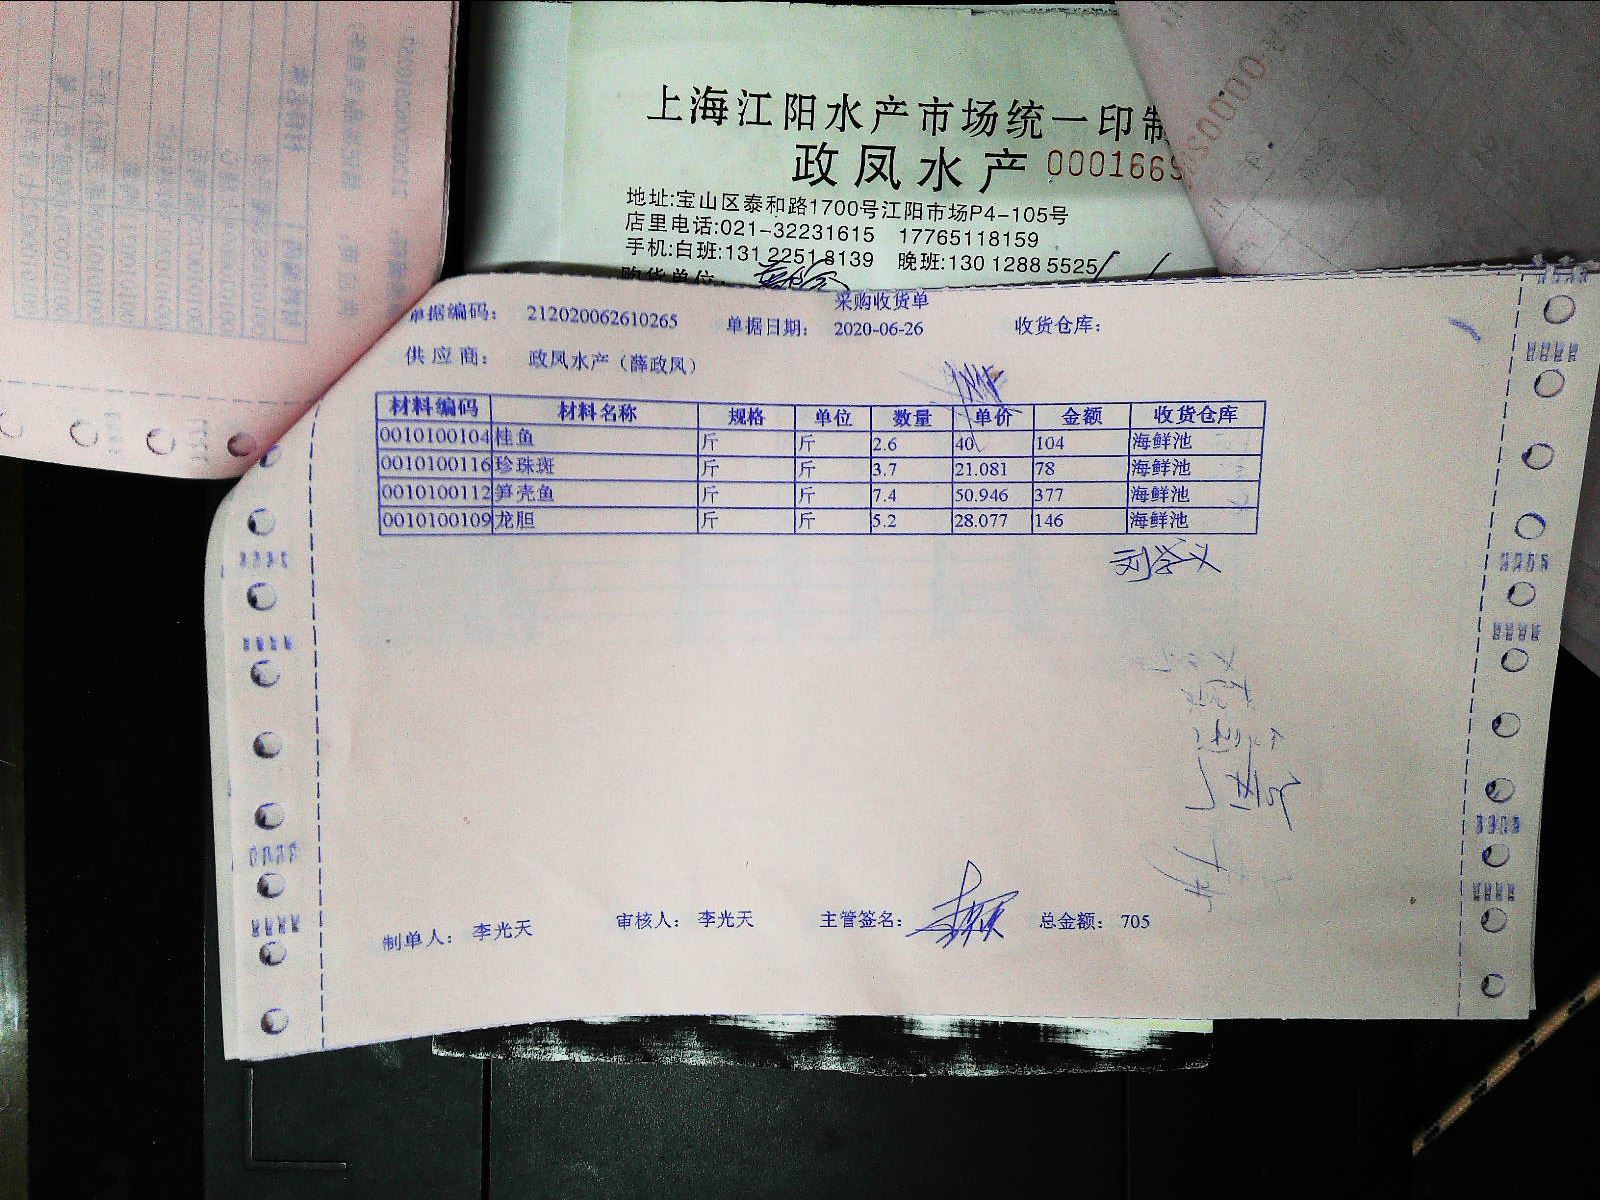 上海江阳水产市场统一印制
政凤水产 0001669
地址:宝山区泰和路1700号江阳市场P4-105号
店里电话:021-32231615 17765118159
手机:白班:131 2251 8139 晚班:130 1288 5525
购货单位:
采购收货单
单据编码: 212020062610265 单据日期: 2020-06-26 收货仓库:
供应商: 政凤水产（薛政凤）
材料编码 材料名称 规格 单位 数量 单价 金额 收货仓库
0010100104 桂鱼 斤 斤 2.6 40 104 海鲜池
0010100116 珍珠斑 斤 斤 3.7 21.081 78 海鲜池
0010100112 笋壳鱼 斤 斤 7.4 50.946 377 海鲜池
0010100109 龙胆 斤 斤 5.2 28.077 146 海鲜池
制单人: 李光天 审核人: 李光天 主管签名: 总金额: 705